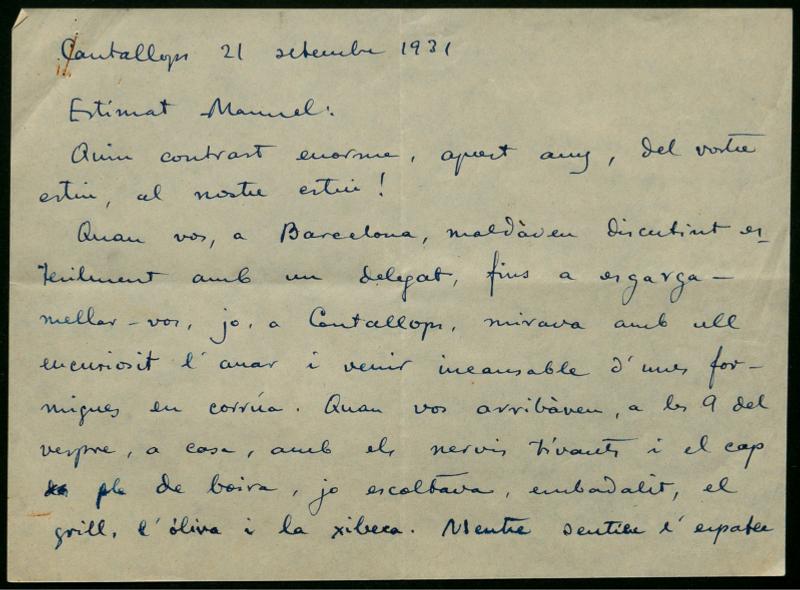 Cantallops 21 setembre 1931
Estimat Manuel:
Quin contrast enorme, apart any, del vostre
estiu, al nostre estiu!
Quan vos, a Barcelona, maldàveu discutint es-
terilment amb un delegat, fins a esgarga-
mellar-vos, jo, a Cantallops, mirava amb ull
encuriosit l'anar i venir incansable d'unes for-
migues en corrúa. Quan vos arribàveu, a les 9 del
vespre, a casa, amb els nervis tivants i el cap
ple de boira, jo escoltava, embadalit, el
grill, l'óliva i la xibeca. Mentre sentíeu l'espetec